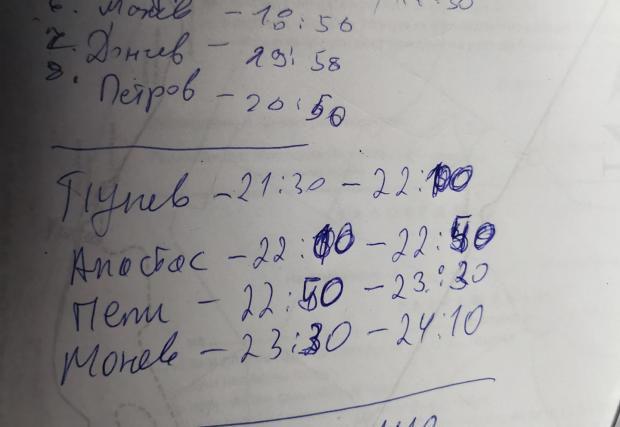 6. Монев - 18:50
7. Дончев - 19:58
8. Петров - 20:50
Пунев - 21:30 - 22:10
Апостос - 22:10 - 22:50
Пепи - 22:50 - 23:30
Монев - 23:30 - 24:10